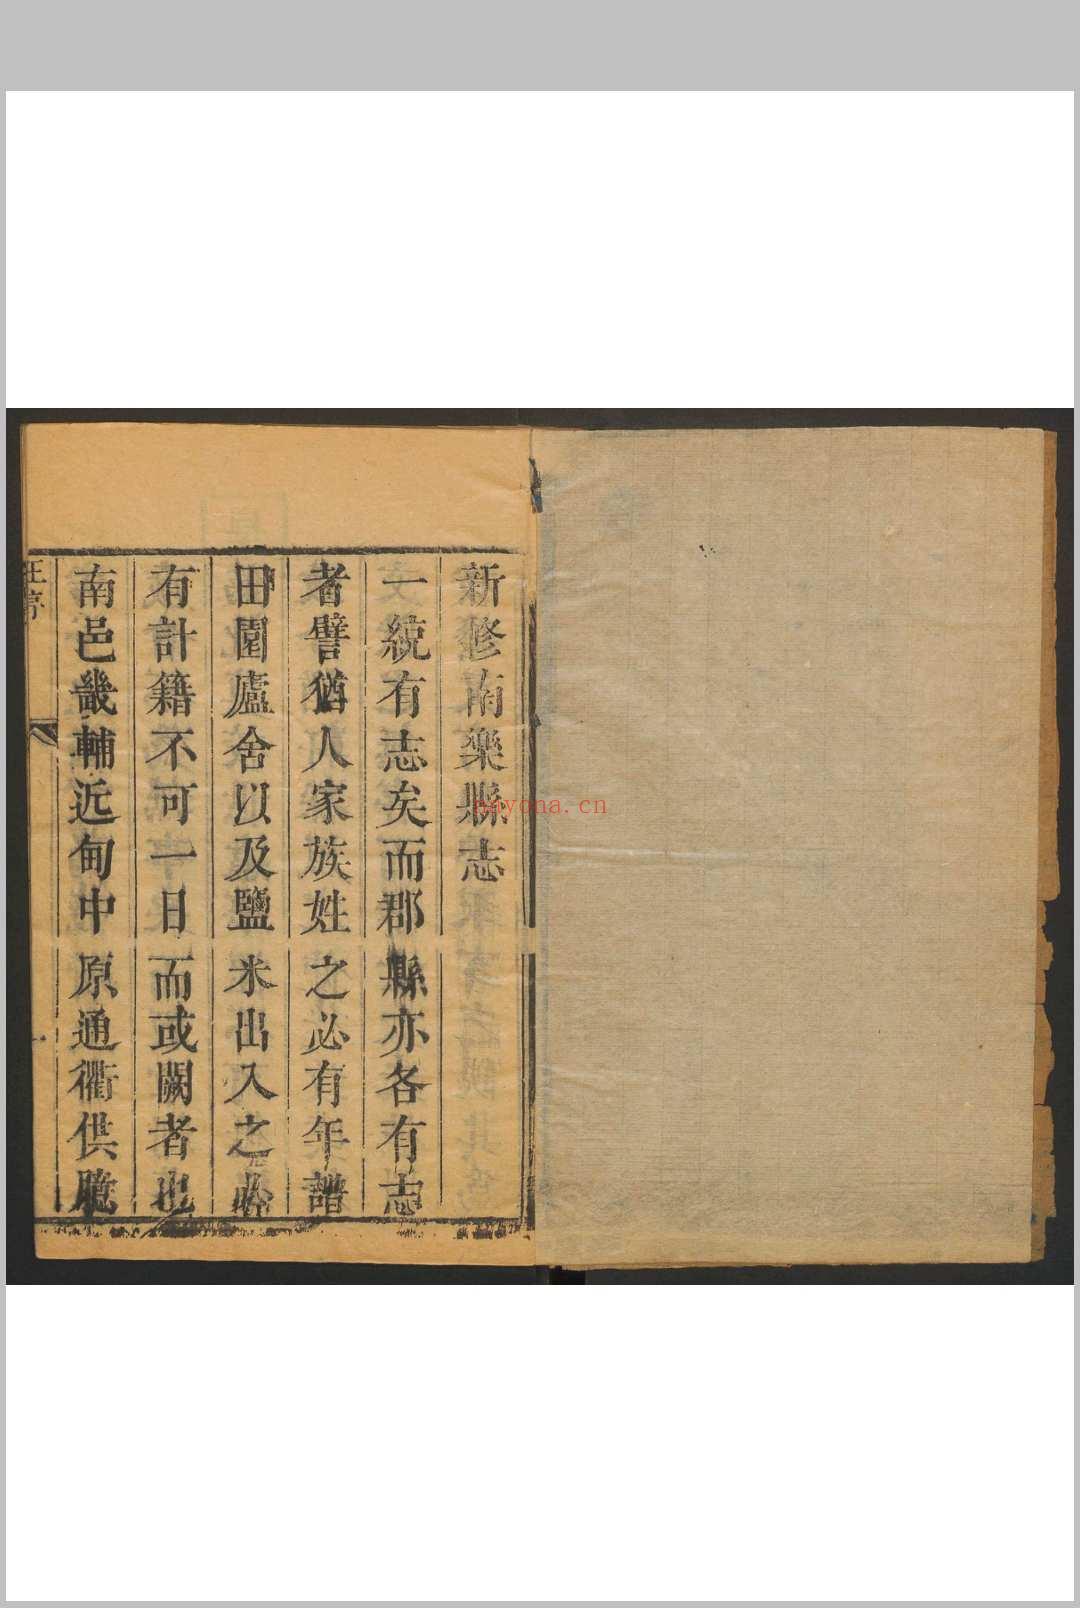 新修南樂縣志
一統有志矣而郡縣亦各有志
者譬猶人家族姓之必有年譜
田園廬舍以及鹽米出入之必
有計籍不可一日而或闕者也
南邑畿輔近甸中原通衢供